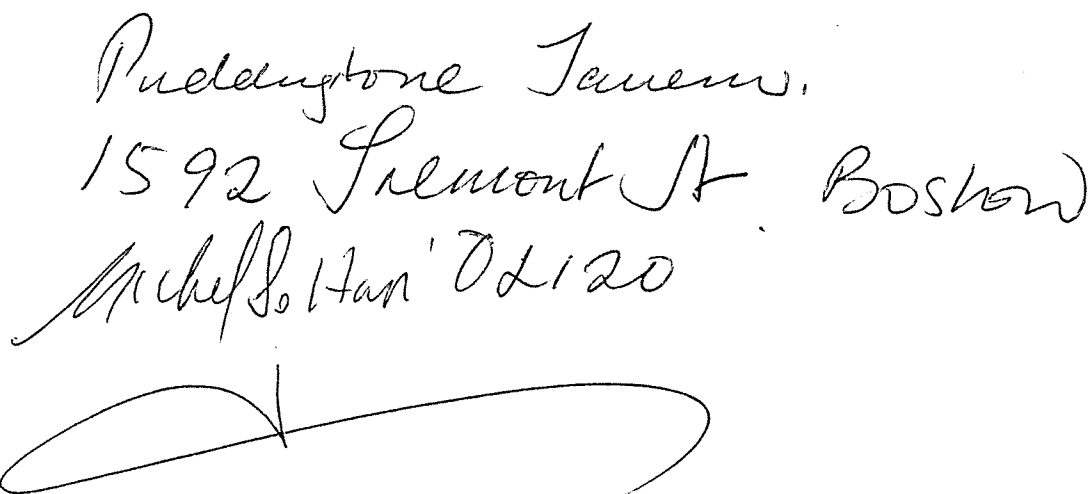 Puddingstone Tavern.
1592 Tremont St. Boston
Michel Soltani 02120